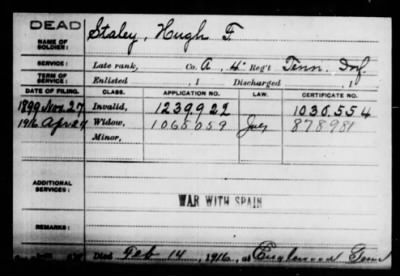 DEAD
NAME OF SOLDIER: Staley, Hugh F.
SERVICE: Late rank, Co. A, 4" Reg't Tenn. Inf.
TERM OF SERVICE: Enlisted , 1 Discharged , 1
DATE OF FILING. CLASS. APPLICATION NO. LAW. CERTIFICATE NO.
1899 Nov. 27 Invalid, 1239922 1030.554
1916 Apr 24 Widow, 1065059 878981
Minor,
ADDITIONAL SERVICES:
WAR WITH SPAIN
REMARKS:
Died Feb 14, 1916, at Englewood Tenn